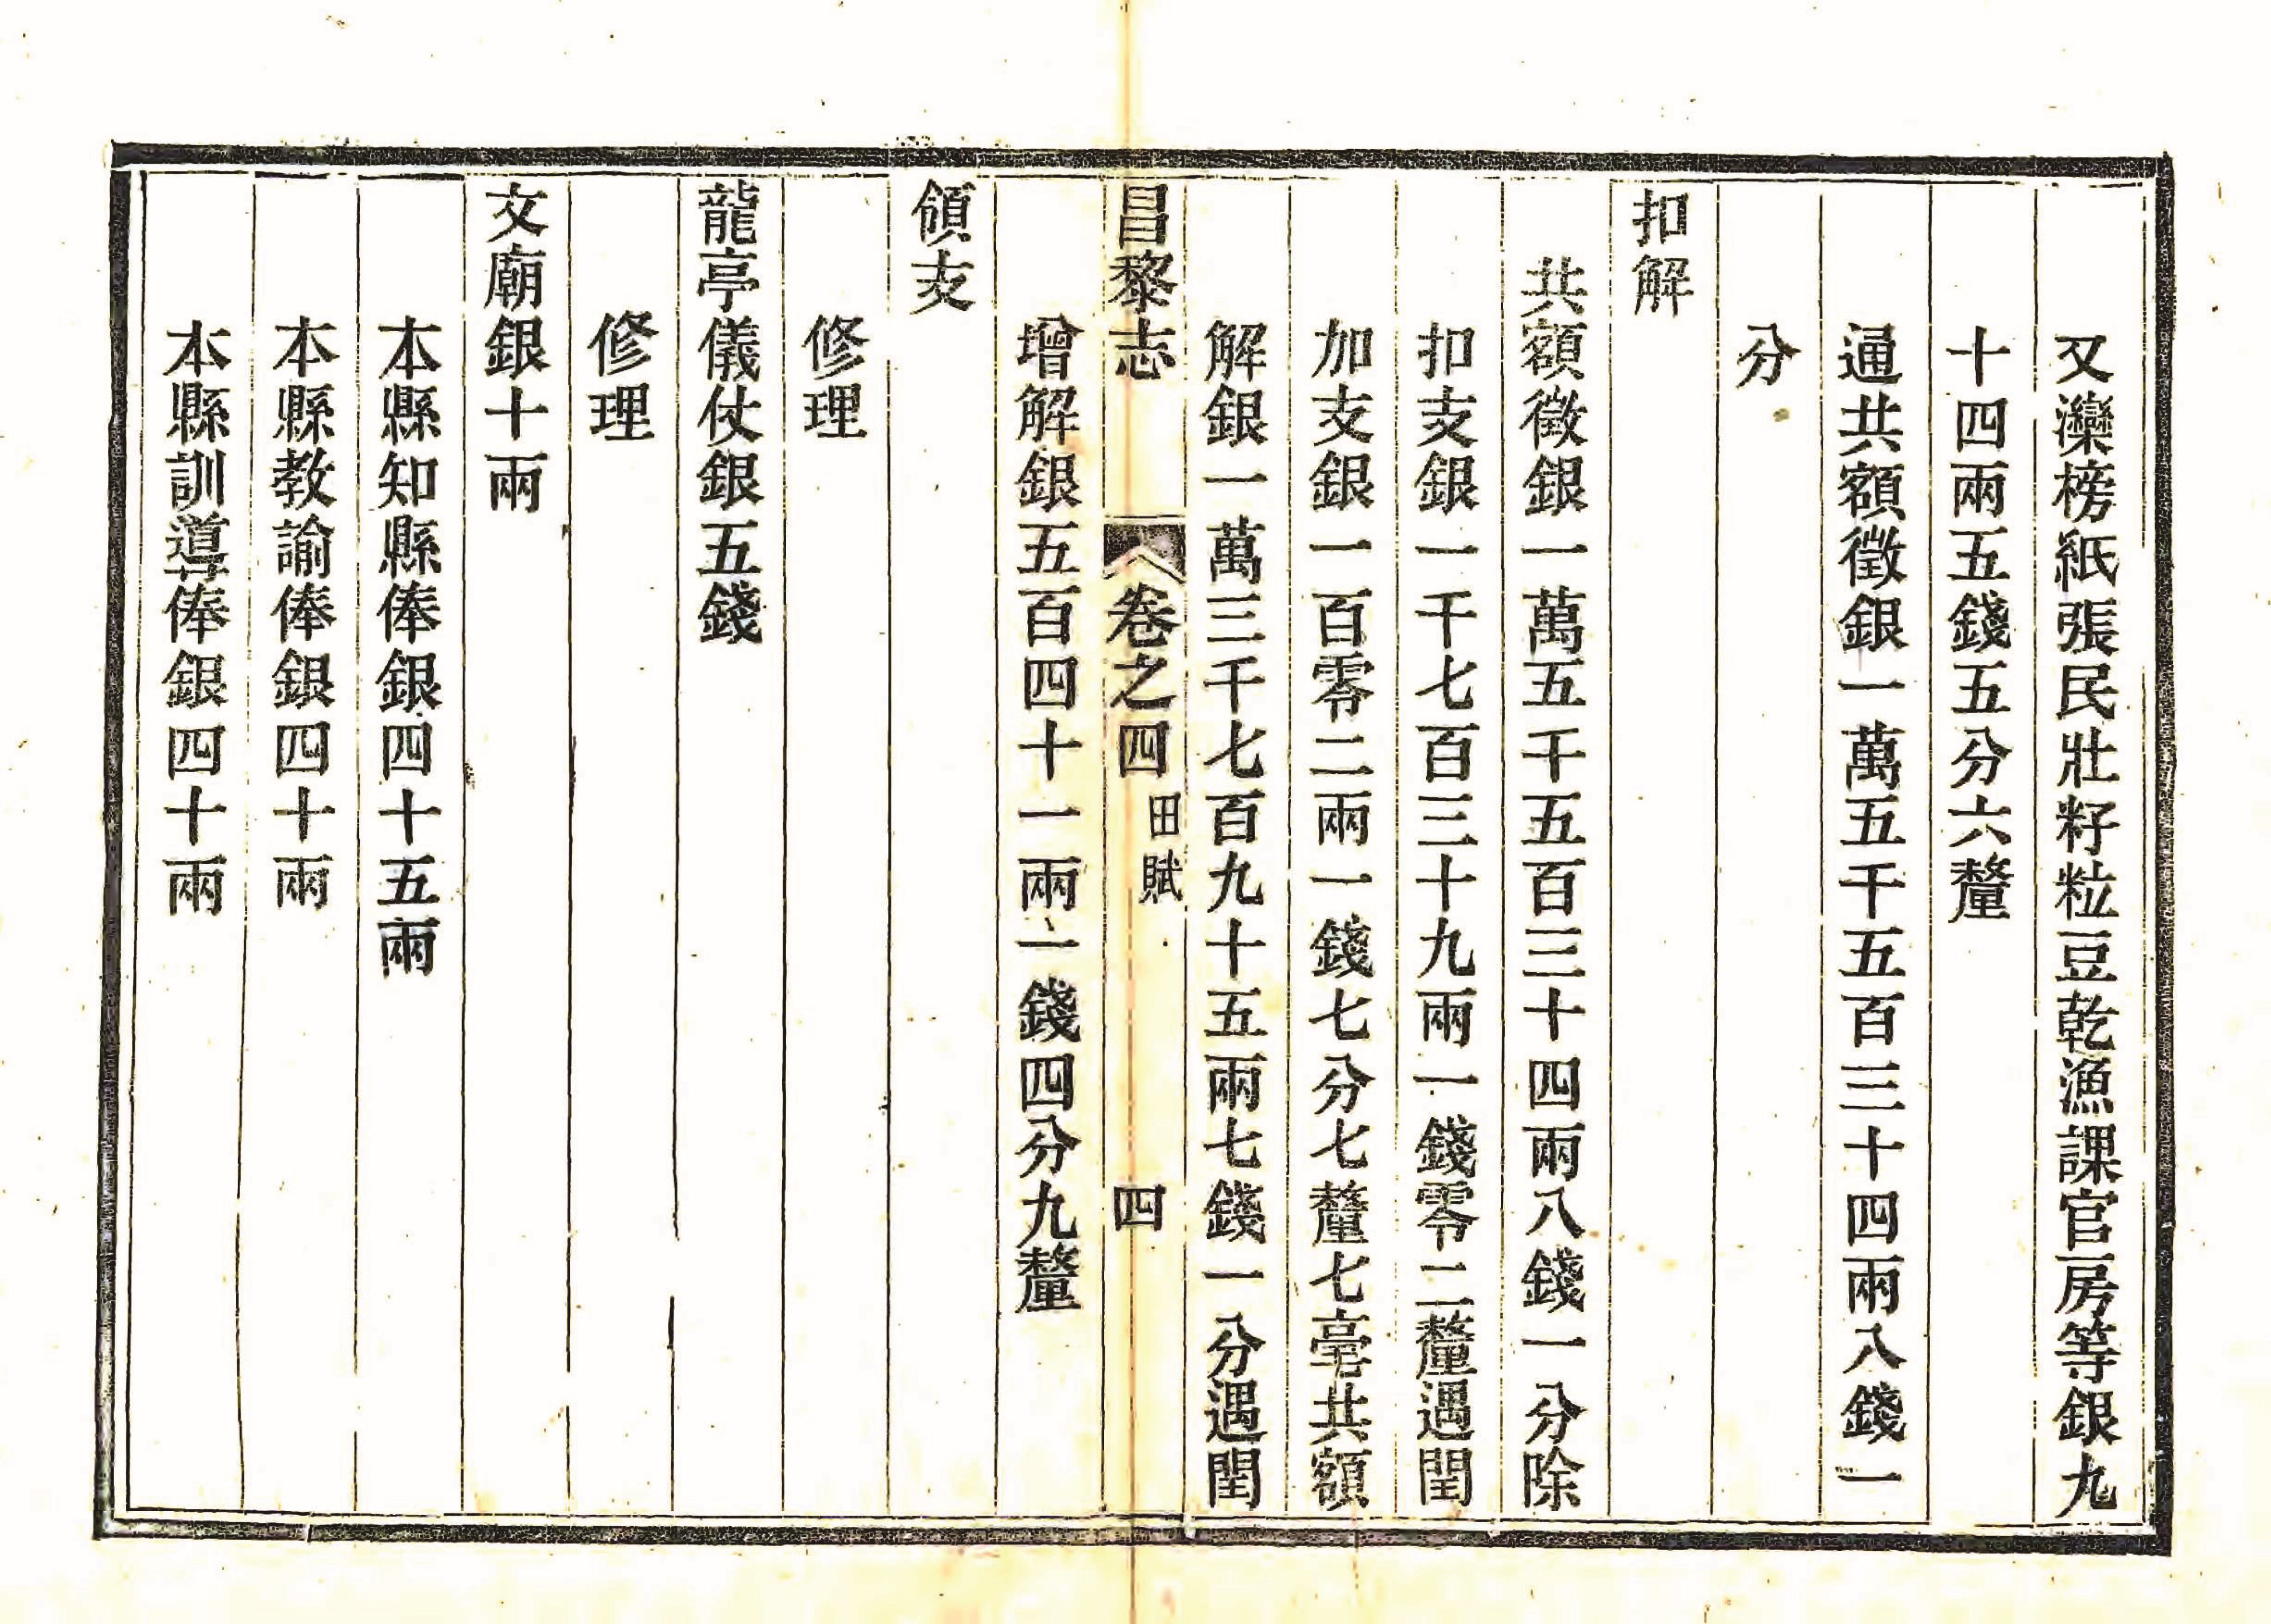 又灤榜紙張民壯籽粒豆乾漁課官房等銀九
十四兩五錢五分六釐
通共額徵銀一萬五千五百三十四兩八錢一
分
扣解
共額徵銀一萬五千五百三十四兩八錢一分除
扣支銀一千七百三十九兩一錢零二釐遇閏
加支銀一百零二兩一錢七分七釐七毫共額
解銀一萬三千七百九十五兩七錢一分遇閏
昌黎志 卷之四 田賦 四
增解銀五百四十一兩一錢四分九釐
領支
修理
龍亭儀仗銀五錢
修理
文廟銀十兩
本縣知縣俸銀四十五兩
本縣教諭俸銀四十兩
本縣訓導俸銀四十兩